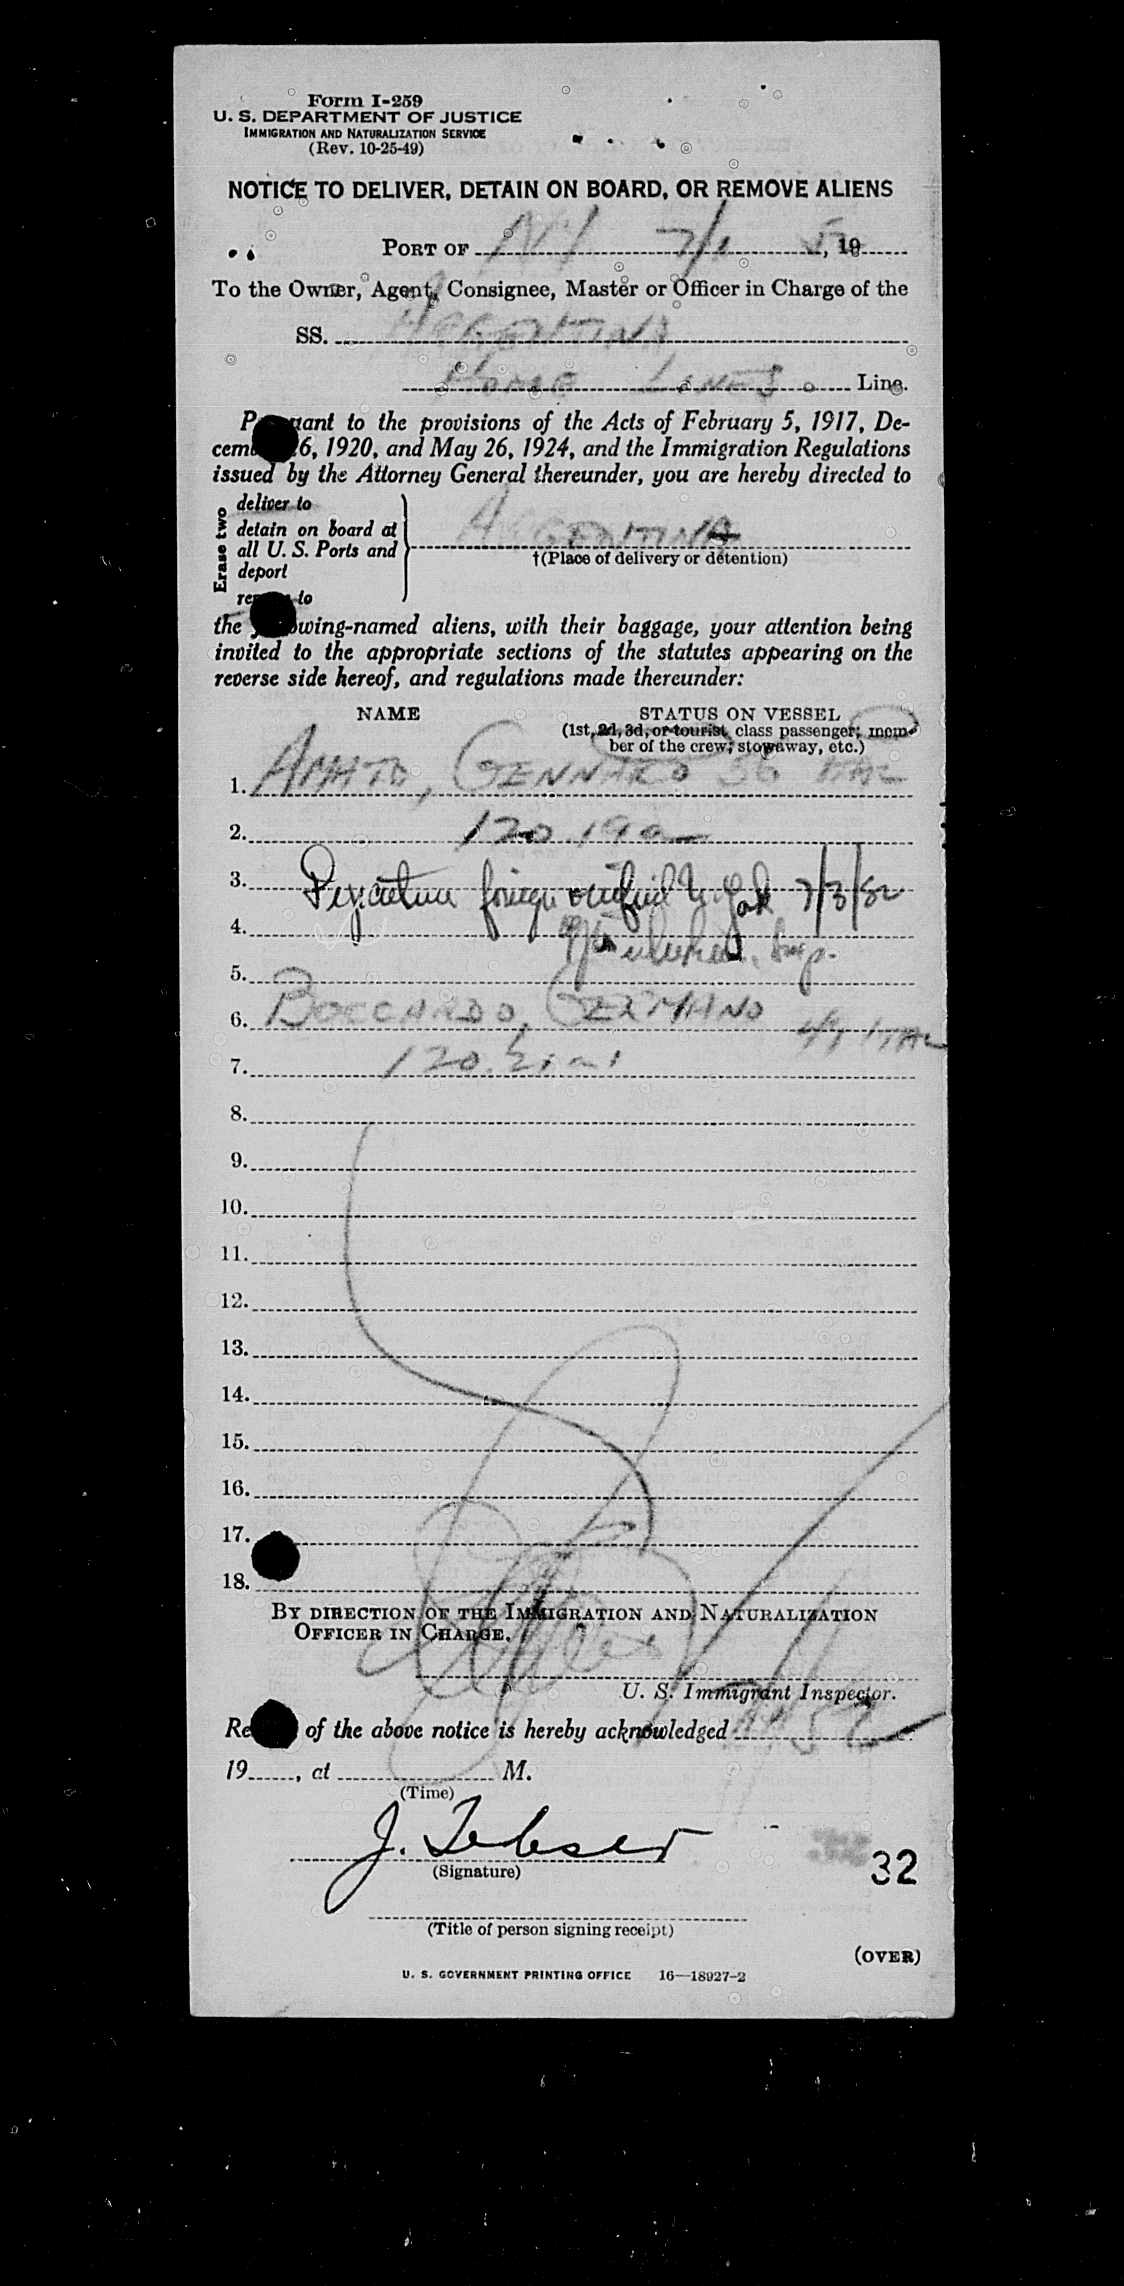 Form I-259
U. S. DEPARTMENT OF JUSTICE
IMMIGRATION AND NATURALIZATION SERVICE
(Rev. 10-25-49)
NOTICE TO DELIVER, DETAIN ON BOARD, OR REMOVE ALIENS
PORT OF NY 7/1, 19
To the Owner, Agent, Consignee, Master or Officer in Charge of the
SS. ARGENTINA
HOME LINES Line.
to the provisions of the Acts of February 5, 1917, De-
6, 1920, and May 26, 1924, and the Immigration Regulations
issued by the Attorney General thereunder, you are hereby directed to
Erase two
deliver to
detain on board at
all U. S. Ports and
deport
to
ARGENTINA
†(Place of delivery or detention)
the owing-named aliens, with their baggage, your attention being
invited to the appropriate sections of the statutes appearing on the
reverse side hereof, and regulations made thereunder:
NAME STATUS ON VESSEL
(1st, 2d, 3d, or tourist class passenger; mem-
ber of the crew; stowaway, etc.)
1. AMATO, GENNARO 36 ITAL
2. 120.19
3. foreign verified 7/3/52
4. Insp.
5.
6. BOCCARDO, GERMANO 49 ITAL
7. 120.
8.
9.
10.
11.
12.
13.
14.
15.
16.
17.
18.
BY DIRECTION OF THE IMMIGRATION AND NATURALIZATION
OFFICER IN CHARGE.
U. S. Immigrant Inspector.
of the above notice is hereby acknowledged
19, at M.
(Time)
J.
(Signature)
32
(Title of person signing receipt)
(OVER)
U. S. GOVERNMENT PRINTING OFFICE 16—18927-2